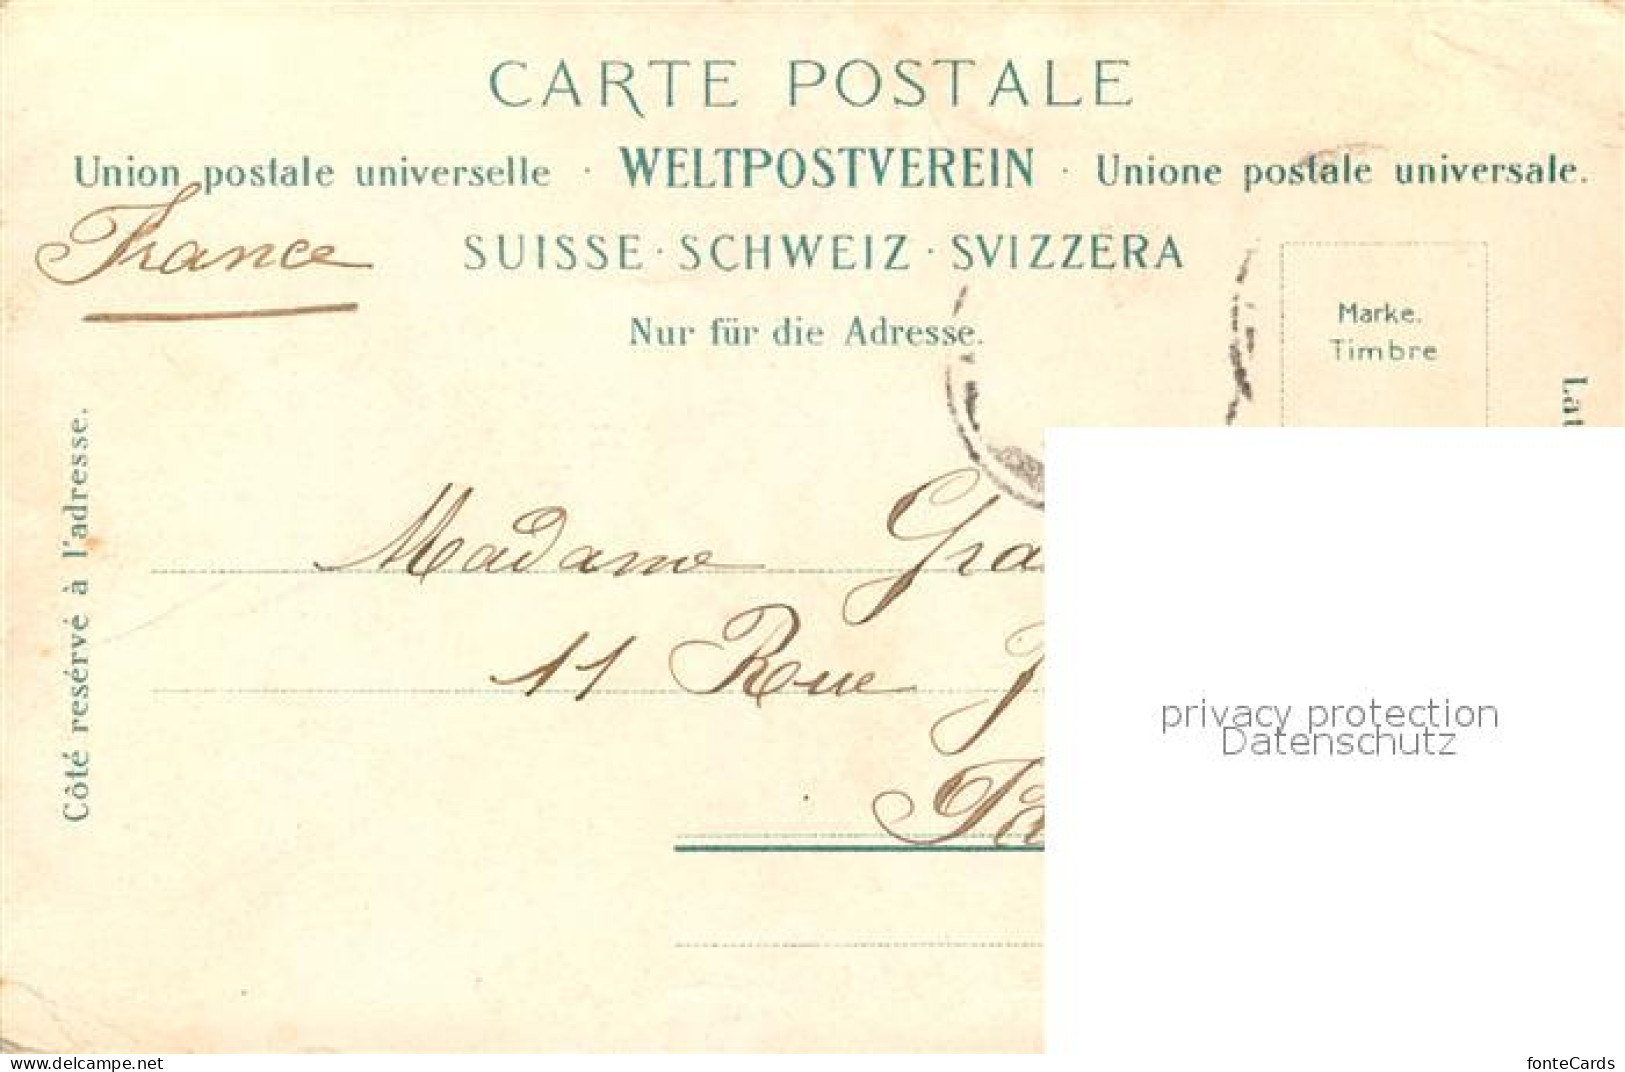 CARTE POSTALE
Union postale universelle · WELTPOSTVEREIN · Unione postale universale.
France
SUISSE · SCHWEIZ · SVIZZERA
Nur für die Adresse.
Marke.
Timbre
Côté resérvé à l'adresse.
Lat
Madame Gra
11 Rue
Pa
privacy protection
Datenschutz
www.delcampe.net
fonteCards